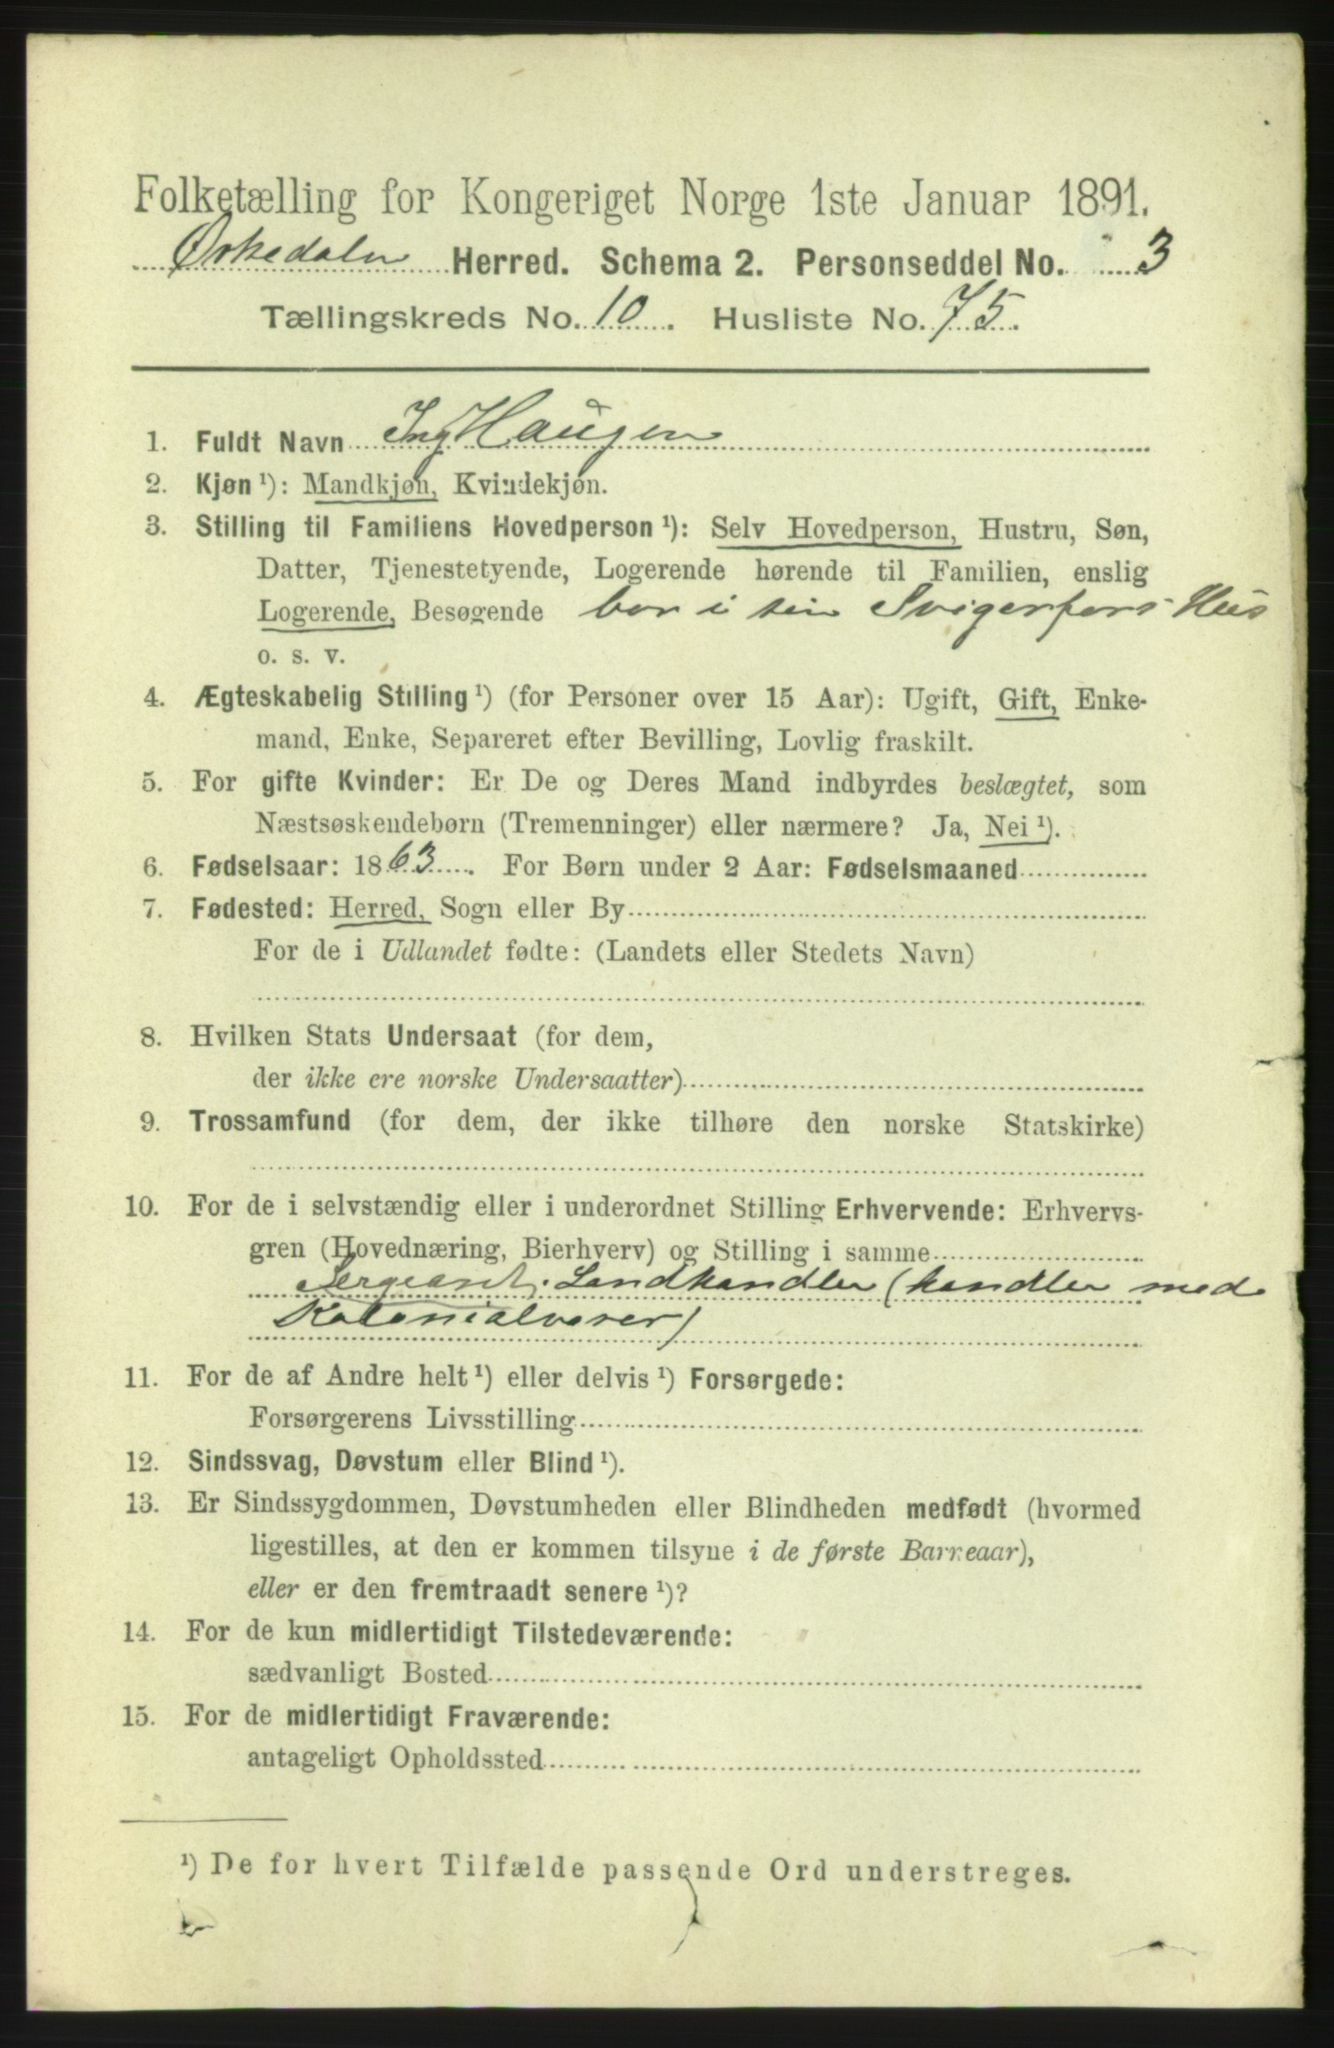 Folketælling for Kongeriget Norge 1ste Januar 1891.
Ørkedalen Herred. Schema 2. Personseddel No. 3
Tællingskreds No. 10. Husliste No. 75.
1. Fuldt Navn Ing Haugen
2. Kjøn ¹): Mandkjøn, Kvindekjøn.
3. Stilling til Familiens Hovedperson ¹): Selv Hovedperson, Hustru, Søn,
Datter, Tjenestetyende, Logerende hørende til Familien, enslig
Logerende, Besøgende bor i sin Svigerfars Hus
o. s. v.
4. Ægteskabelig Stilling ¹) (for Personer over 15 Aar): Ugift, Gift, Enke-
mand, Enke, Separeret efter Bevilling, Lovlig fraskilt.
5. For gifte Kvinder: Er De og Deres Mand indbyrdes beslægtet, som
Næstsøskendebørn (Tremenninger) eller nærmere? Ja, Nei ¹).
6. Fødselsaar: 1863. For Børn under 2 Aar: Fødselsmaaned
7. Fødested: Herred, Sogn eller By
For de i Udlandet fødte: (Landets eller Stedets Navn)
8. Hvilken Stats Undersaat (for dem,
der ikke ere norske Undersaatter)
9. Trossamfund (for dem, der ikke tilhøre den norske Statskirke)
10. For de i selvstændig eller i underordnet Stilling Erhvervende: Erhvervs-
gren (Hovednæring, Bierhverv) og Stilling i samme
Sergeant. Landhandler (handler med
Kolonialvarer)
11. For de af Andre helt ¹) eller delvis ¹) Forsørgede:
Forsørgerens Livsstilling
12. Sindssvag, Døvstum eller Blind ¹).
13. Er Sindssygdommen, Døvstumheden eller Blindheden medfødt (hvormed
ligestilles, at den er kommen tilsyne i de første Barneaar),
eller er den fremtraadt senere ¹)?
14. For de kun midlertidigt Tilstedeværende:
sædvanligt Bosted
15. For de midlertidigt Fraværende:
antageligt Opholdssted
¹) De for hvert Tilfælde passende Ord understreges.